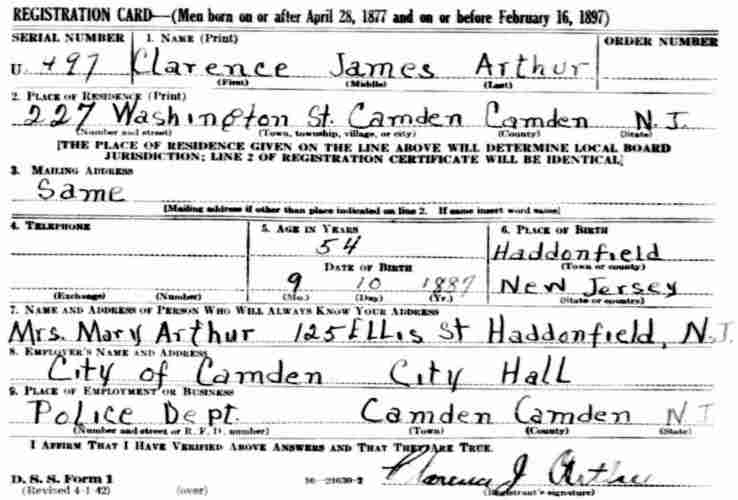 REGISTRATION CARD—(Men born on or after April 28, 1877 and on or before February 16, 1897)
SERIAL NUMBER 1. NAME (Print) ORDER NUMBER
U 497 Clarence James Arthur
(First) (Middle) (Last)
2. PLACE OF RESIDENCE (Print)
227 Washington St. Camden Camden N.J.
(Number and street) (Town, township, village, or city) (County) (State)
[THE PLACE OF RESIDENCE GIVEN ON THE LINE ABOVE WILL DETERMINE LOCAL BOARD
JURISDICTION; LINE 2 OF REGISTRATION CERTIFICATE WILL BE IDENTICAL]
3. MAILING ADDRESS
Same
[Mailing address if other than place indicated on line 2. If same insert word same]
4. TELEPHONE 5. AGE IN YEARS 6. PLACE OF BIRTH
54 Haddonfield
DATE OF BIRTH (Town or county)
9 10 1887 New Jersey
(Exchange) (Number) (Mo.) (Day) (Yr.) (State or country)
7. NAME AND ADDRESS OF PERSON WHO WILL ALWAYS KNOW YOUR ADDRESS
Mrs. Mary Arthur 125 Ellis St Haddonfield, N.J.
8. EMPLOYER'S NAME AND ADDRESS
City of Camden City Hall
9. PLACE OF EMPLOYMENT OR BUSINESS
Police Dept. Camden Camden N.J
(Number and street or R. F. D. number) (Town) (County) (State)
I AFFIRM THAT I HAVE VERIFIED ABOVE ANSWERS AND THAT THEY ARE TRUE.
D. S. S. Form 1 16—21630-2 Clarence J Arthur
(Revised 4-1-42) (over) (Registrant's signature)